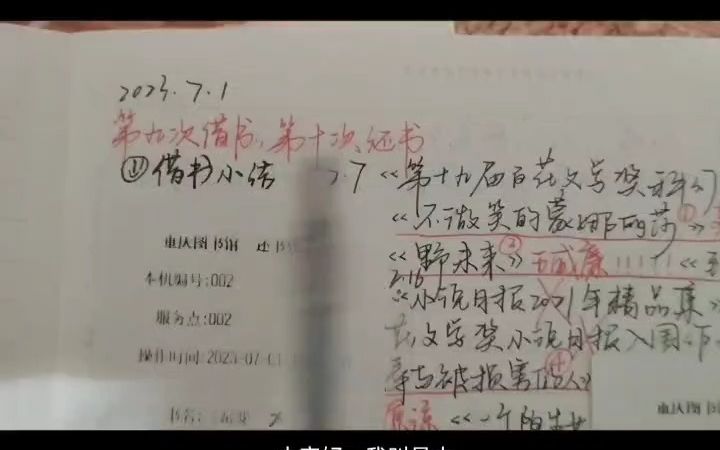 2023.7.1
第九次借书、第十次还书
⑪借书小结
.7《第十九届百花文学奖科幻
《不微笑的蒙娜丽莎》①
重庆图书馆 还书
《野未来》②王威廉!!!!!《
本机编号:002
2.16
《小说月报2021年精品集》
服务点:002
花文学奖小说月报入围作
操作时间:2023-07-01
辱与被损害的人》④
书名:
原谅《一个陌生女
重庆图书